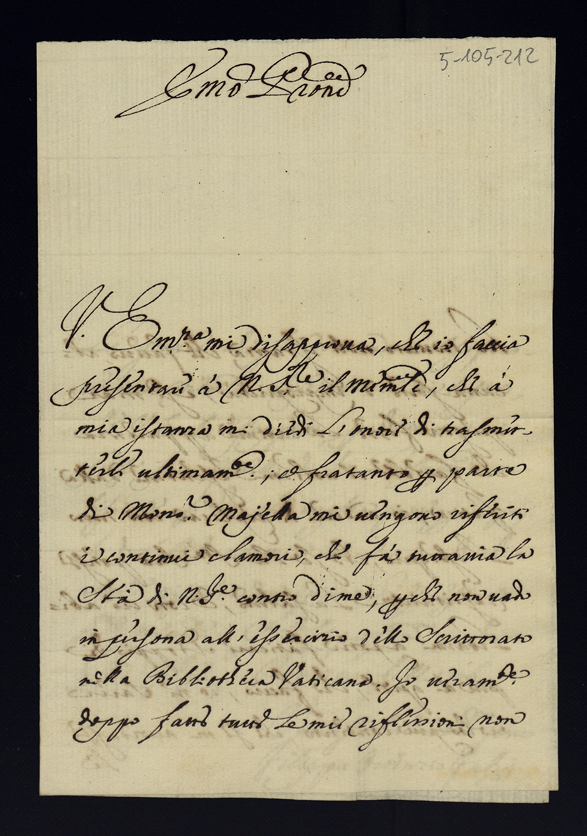 5-105-212
Emo Prone
V. Em.ra mi disapprova, che io faccia
presentare à N. S.re il mem.le, che à
mia istanza mi diedi l'onore di trasmet-
terle ultimam.te; e fratanto p parte
di Mons.r Majella mi vengono riferiti
i continui clamori, che fà tuttavia la
Stà di N. S.re contro di me, p che non vado
in persona all'essercizio dello Scrittorato
nella Bibliotheca Vaticana. Io veram.te
doppo fatto tutte le mie riflessioni non